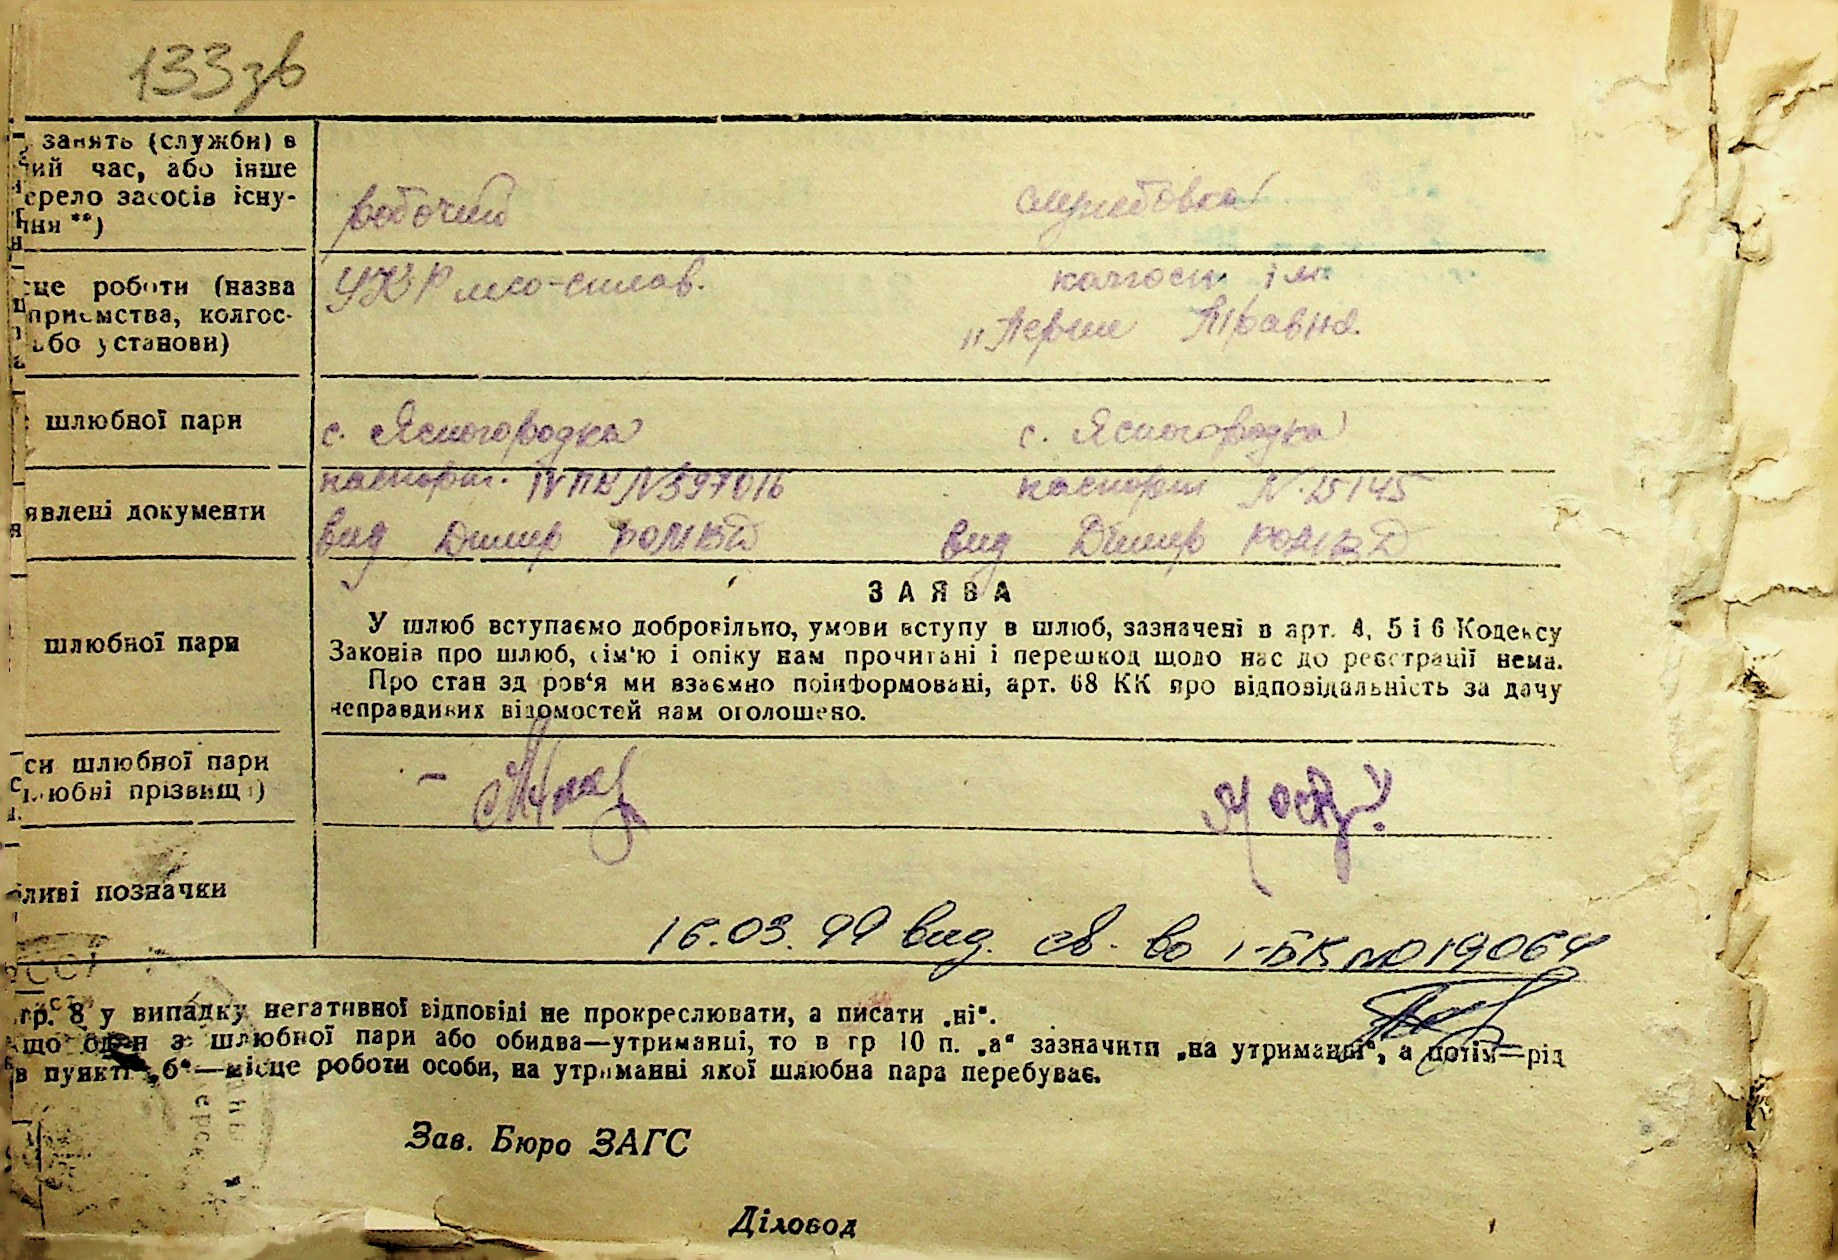 133зв
занять (служби) в
час, або інше
засобів існу-
робочий службовка
роботи (назва
колгос-
установи)
УКР лісо-сплав. колгосп ім.
"Перше Травня.
шлюбної пари
с. Ясногородка с. Ясногородка
документи
паспорт. паспорт N. 15145
вид Димир РОМВД вид Димир РОМВД
ЗАЯВА
шлюбної пари
У шлюб вступаємо добровільно, умови вступу в шлюб, зазначені в арт. 4, 5 і 6 Кодексу
Законів про шлюб, сім'ю і опіку нам прочитані і перешкод щодо нас до реєстрації нема.
Про стан здоров'я ми взаємно поінформовані, арт. 68 КК про відповідальність за дачу
неправдивих відомостей нам оголошено.
шлюбної пари
прізвища)
позначки
16.03.99 вид. св-во І-БК №019064
гр. 8 у випадку негативної відповіді не прокреслювати, а писати „ні“.
один з шлюбної пари або обидва—утриманці, то в гр 10 п. „а“ зазначити „на утриманні“, а потім—рід
в пункті „б“—місце роботи особи, на утриманні якої шлюбна пара перебуває.
Зав. Бюро ЗАГС
Діловод